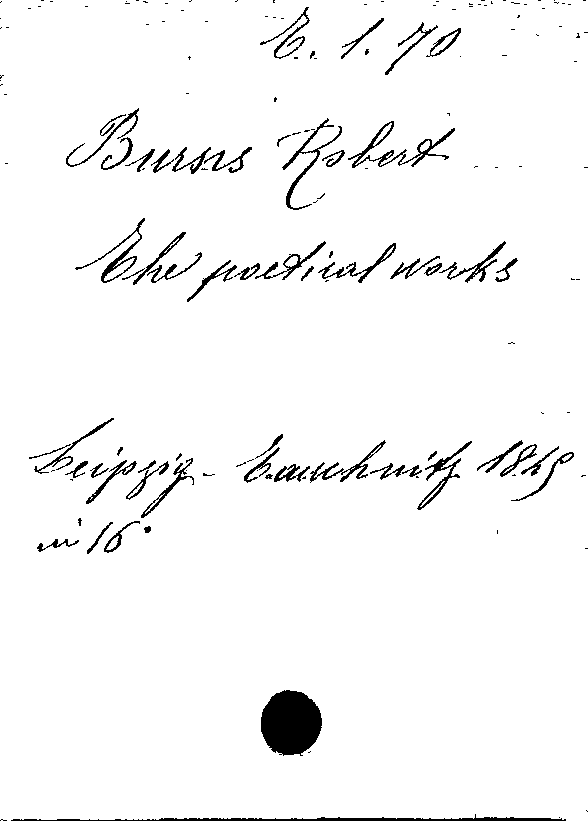 T. 1. 70
Burns Robert
The poetical works
Leipzig - Tauchnitz 1845
in 16°